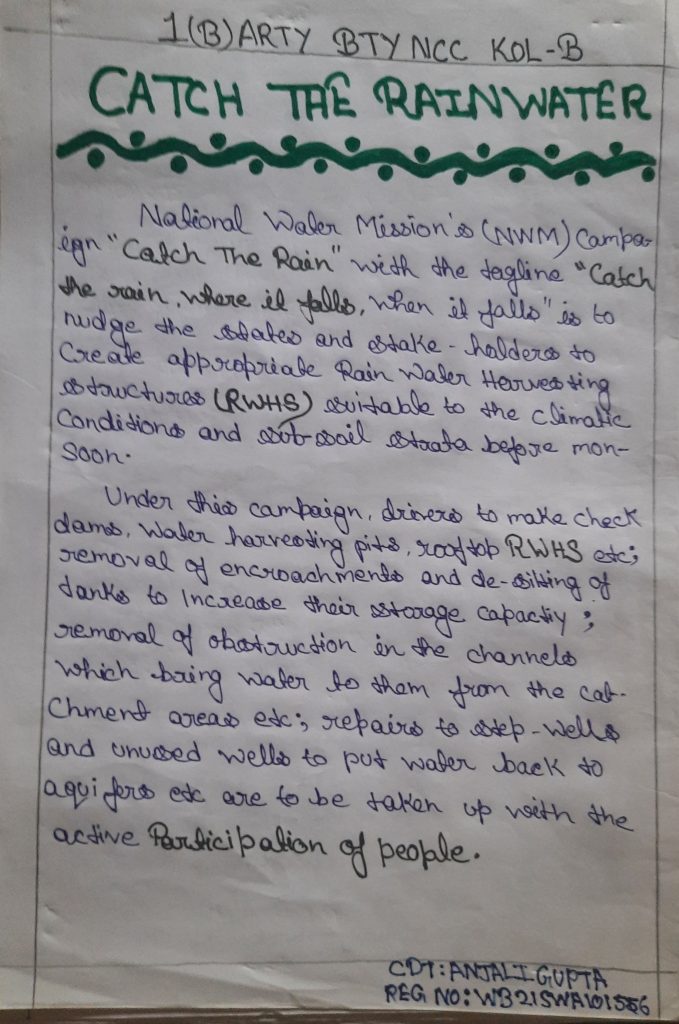 1(B) ARTY BTY NCC KOL-B
CATCH THE RAINWATER
National Water Mission's (NWM) Campa-
ign "Catch The Rain" with the tagline "Catch
the rain, where it falls, when it falls" is to
nudge the states and stake-holders to
Create appropriate Rain Water Harvesting
structures (RWHS) suitable to the climatic
Conditions and sub-soil strata before mon-
soon.
Under this campaign, drivers to make check
dams, water harvesting pits, rooftop RWHS etc;
removal of encroachments and de-silting of
tanks to Increase their storage capactiy;
removal of obstruction in the channels
which bring water to them from the cat-
chment areas etc; repairs to step-wells
and unused wells to put water back to
aquifers etc are to be taken up with the
active Participation of people.
CDT: ANJALI GUPTA
REG NO: WB21SWA101556